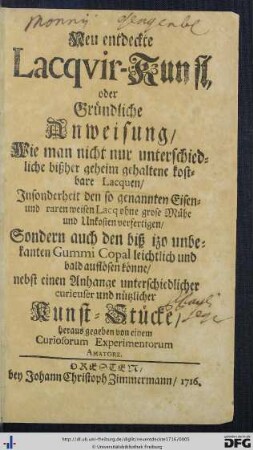 Neu entdeckte
Lacqvir-Kunst,
oder
Gründliche
Anweisung/
Wie man nicht nur unterschied-
liche bißher geheim gehaltene kost-
bare Lacquen/
Insonderheit den so genannten Eisen-
und raren weisen Lacq ohne grose Mühe
und Unkosten verfertigen/
Sondern auch den biß izo unbe-
kanten Gummi Copal leichtlich und
bald auflösen könne/
nebst einen Anhange unterschiedlicher
curieuser und nützlicher
Kunst-Stücke/
heraus gegeben von einem
Curiosorum Experimentorum
AMATORE.
DRESDEN/
bey Johann Christoph Zimmermann/ 1716.
© Universitätsbibliothek Freiberg
GEFÖRDERT VON
DFG